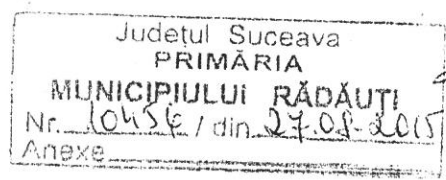 Județul Suceava
PRIMĂRIA
MUNICIPIULUI RĂDĂUȚI
Nr. / din 27.08-2015
Anexe